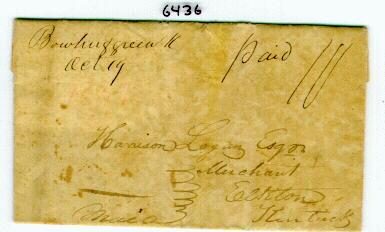 6436
Bowlingreen K
Oct 19
Paid
Harrison Logan Esqr
Merchant
Elkton
Kentucky
Mail